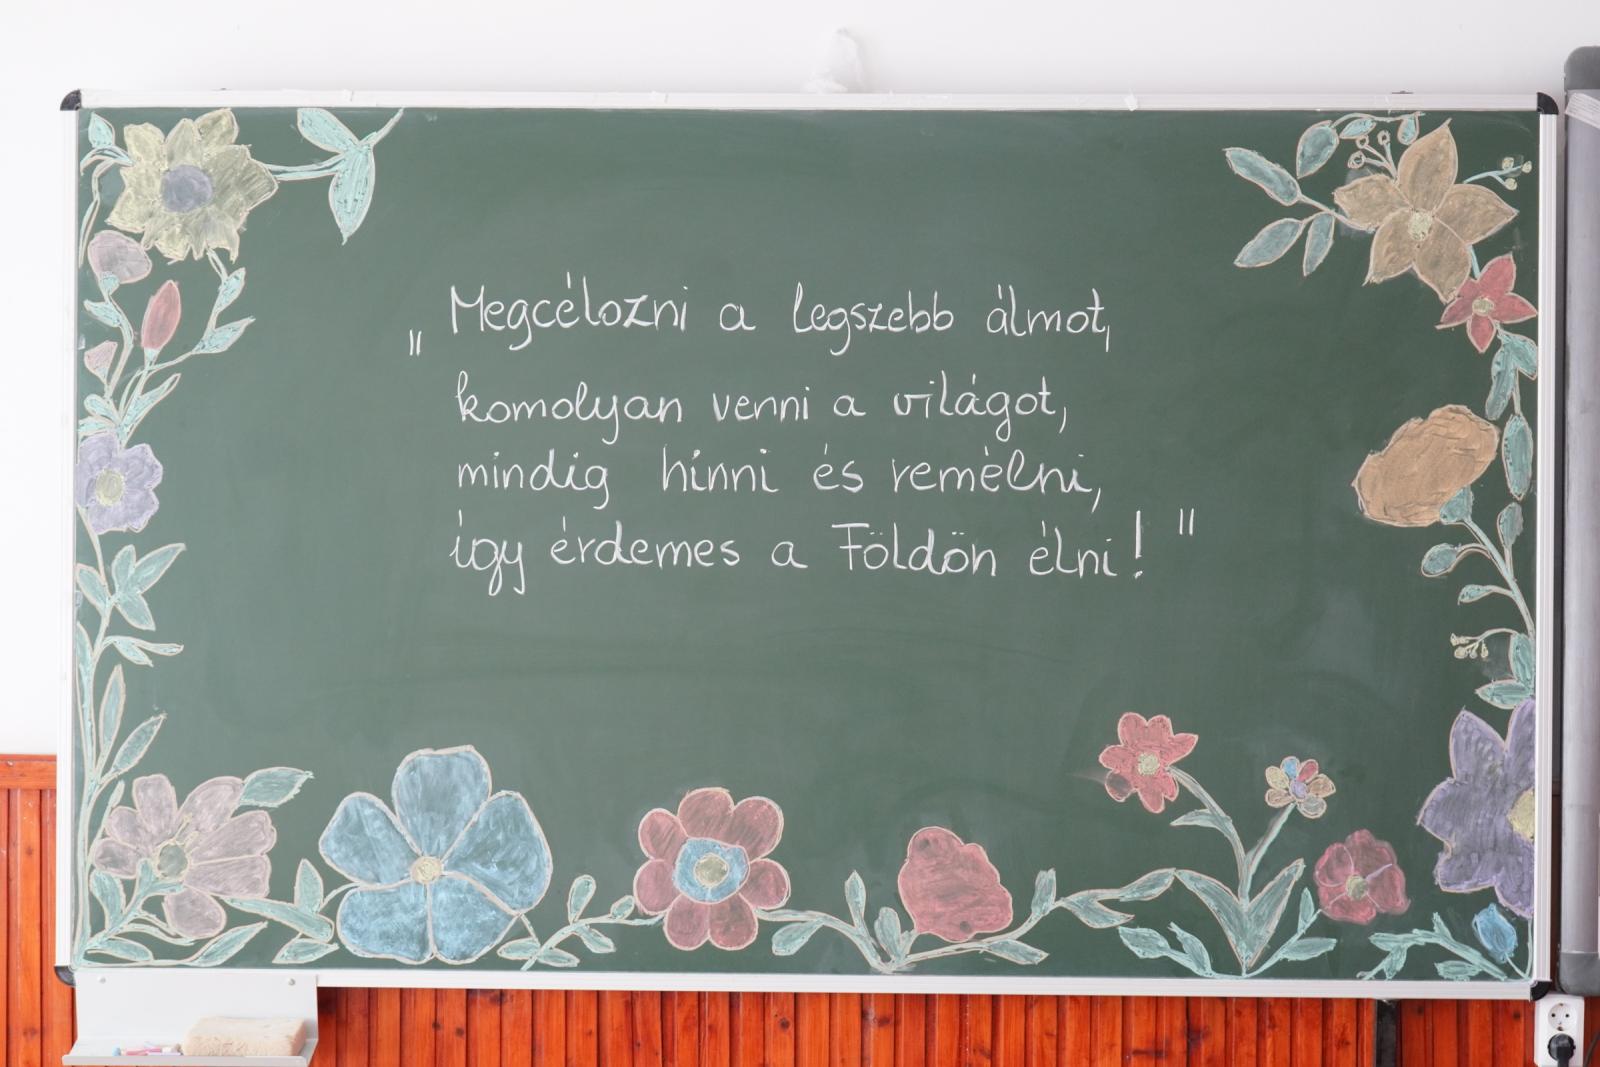 „Megcélozni a legszebb álmot,
komolyan venni a világot,
mindig hinni és remélni,
így érdemes a Földön élni!"